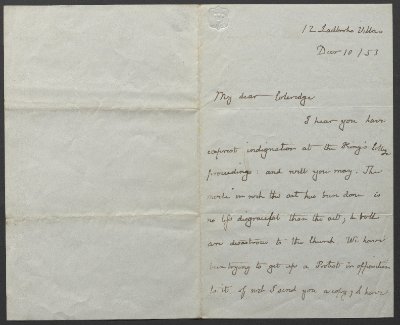 12 Ladbroke Villas
Decr 10 / 53
My dear Coleridge
I hear you have
expressed indignation at the King's College
proceedings: and well you may. The
mode in wch the act has been done is
no less disgraceful than the act; & both
are disastrous to the Church. We have
been trying to get up a Protest in opposition
to it of wch I send you a copy; & have